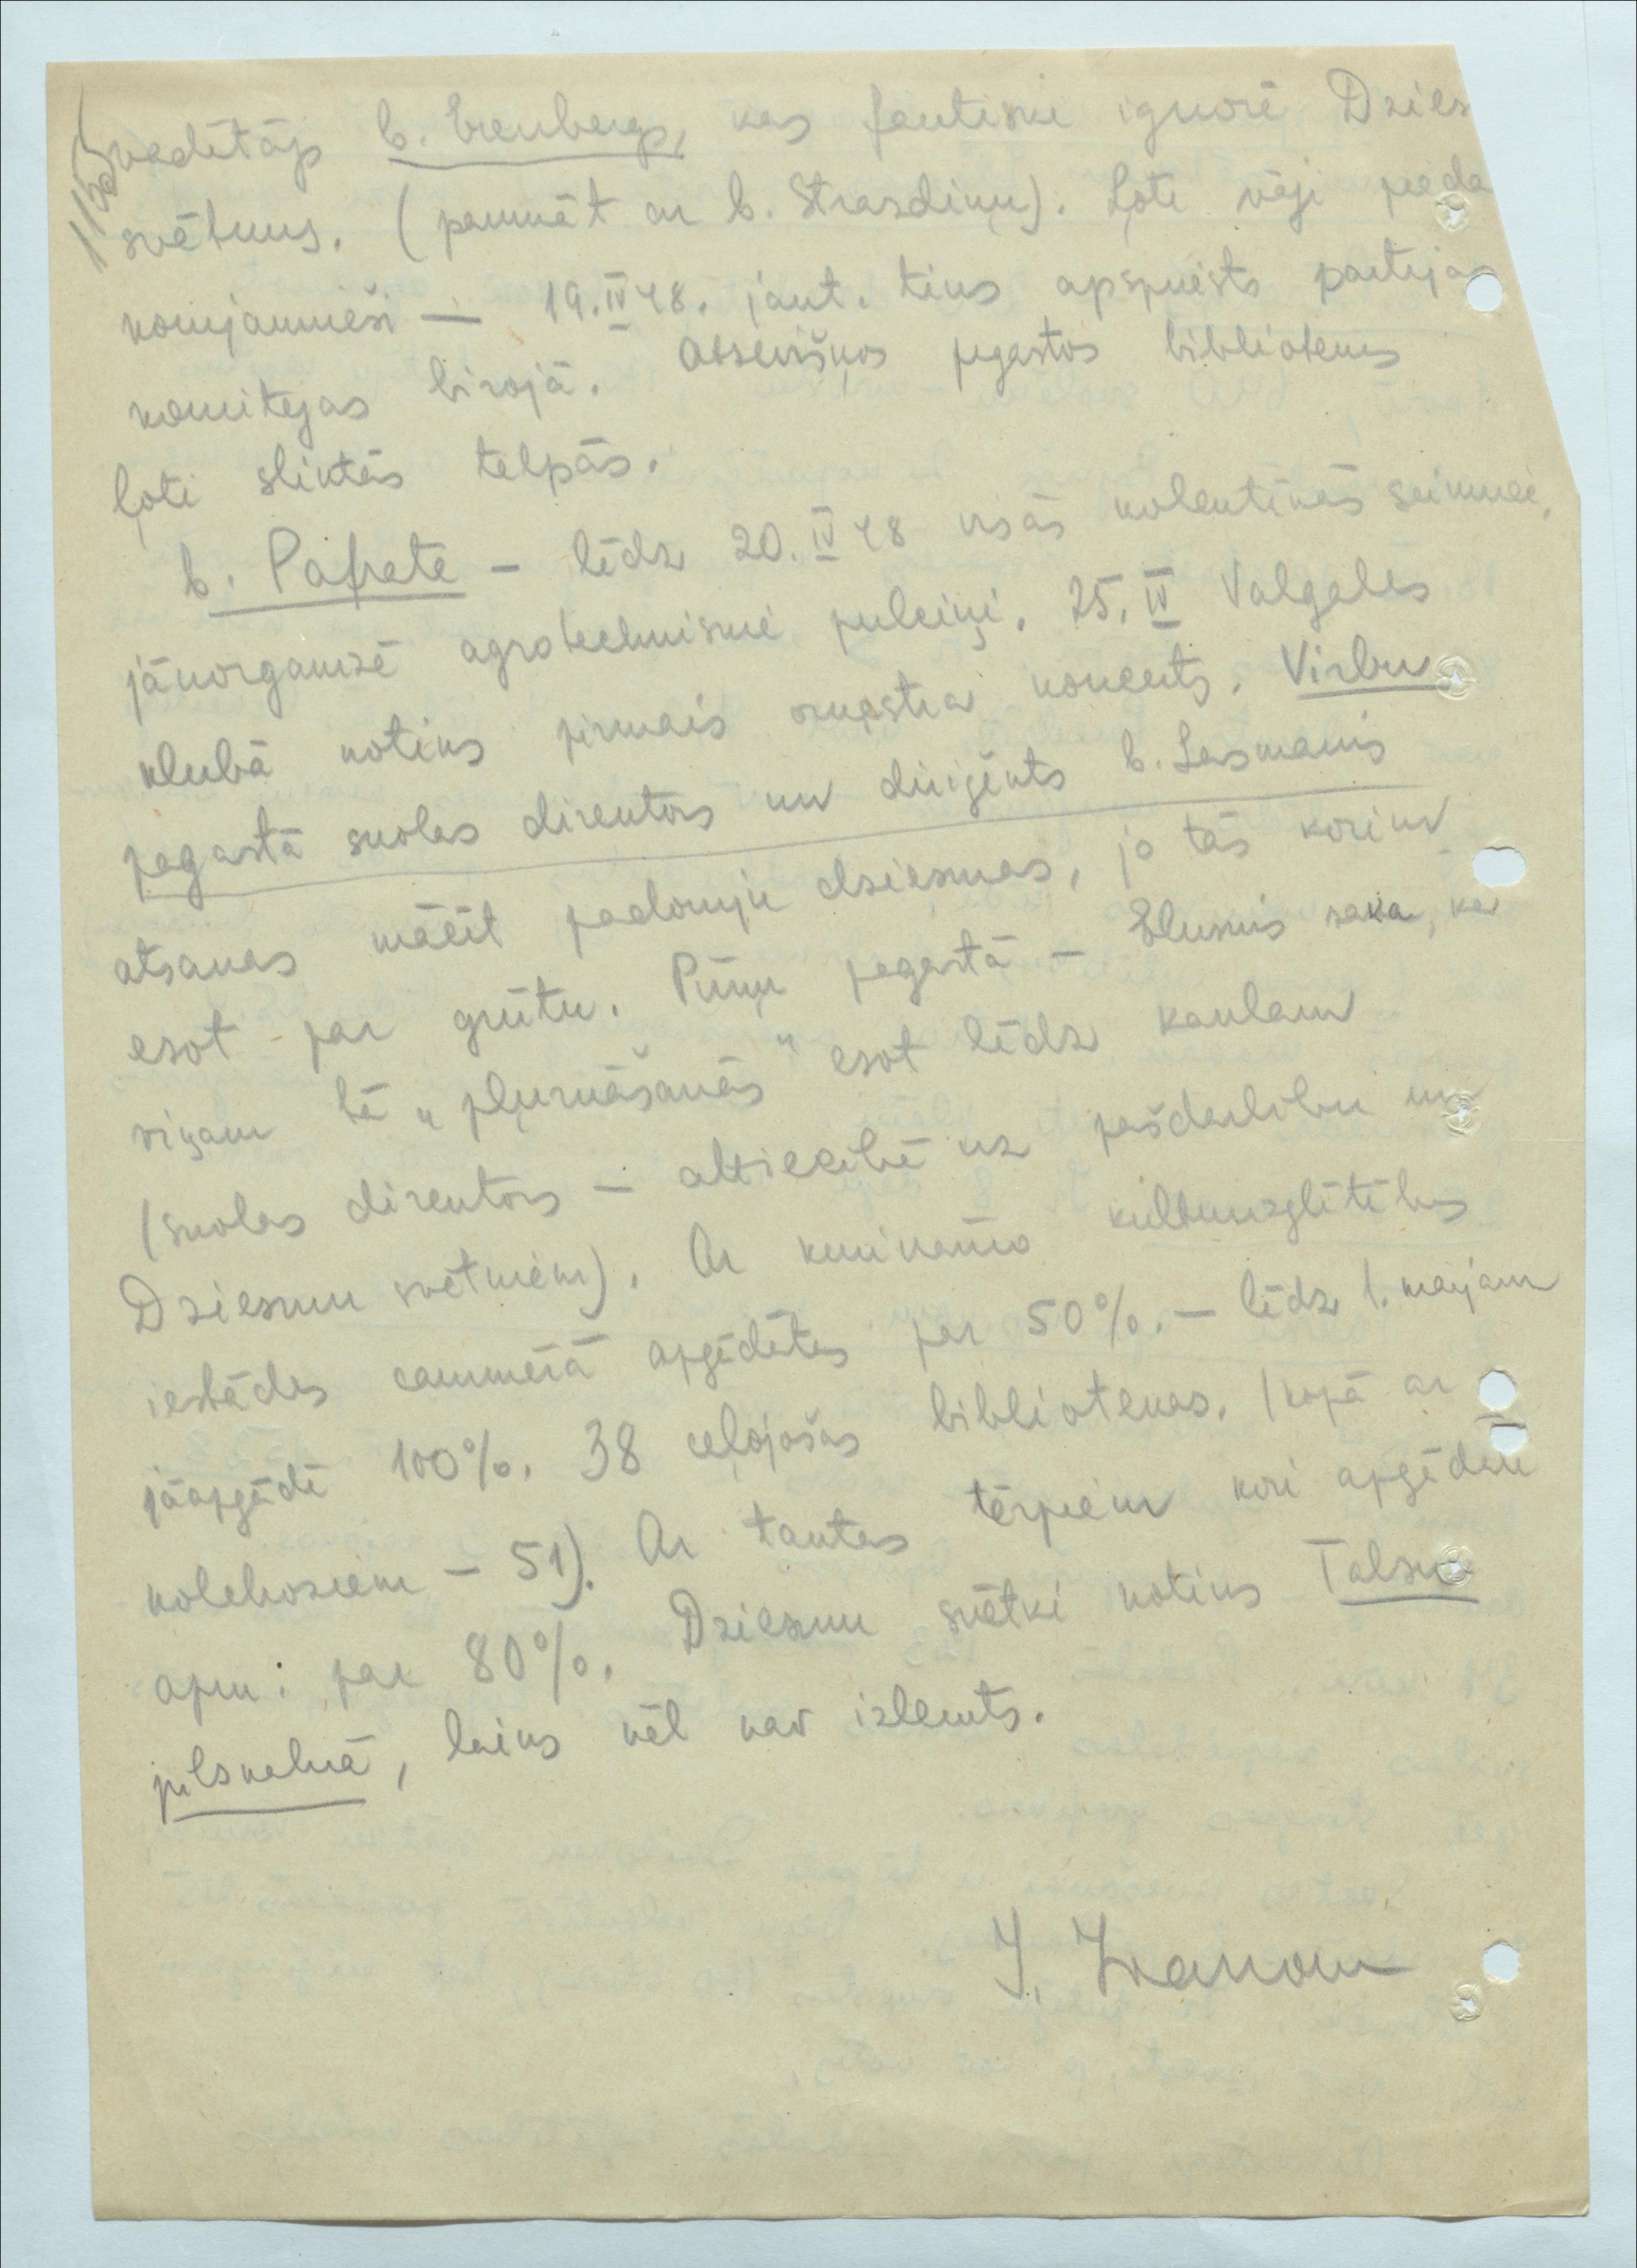 vadītājs b. Erenbergs, kas faktiski ignorē Dzies
svētkus. (parunāt ar b. Strazdiņu). Ļoti vāji pieda
komjaunieši — 19.IV48. jaut. tiks apspriests partijas
komitejas birojā. Atsevišķos pagastos bibliotekas
ļoti sliktās telpās.
b. Pafrate – līdz 20.IV48 visās kolektīvās saimnec.
jānorganizē agrotechniskie pulciņi. 25.IV Valgales
klubā notiks pirmais orķestra koncerts. Virbu
pagastā skolas direktors un diriģents b. Lasmanis
atsakās mācīt padomju dziesmas, jo tās korim
esot par grūtu. Pūņu pagastā – Elksnis saka, ka
viņam tā „pļurkāšanās" esot līdz kaulam
(skolas direktors – attiecībā uz pašdarbību un
Dziesmu svētkiem). Ar kurināmo kultūrizglītības
iestādes caurmērā apgādātas par 50%. – līdz 1. maijam
jāapgādā 100%. 38 ceļojošās bibliotekas. (kopā ar
kolchoziem – 51). Ar tautas tērpiem kori apgādāti
apm. par 80%. Dziesmu svētki notiks Talsu
pilskalnā, laiks vēl nav izlemts.